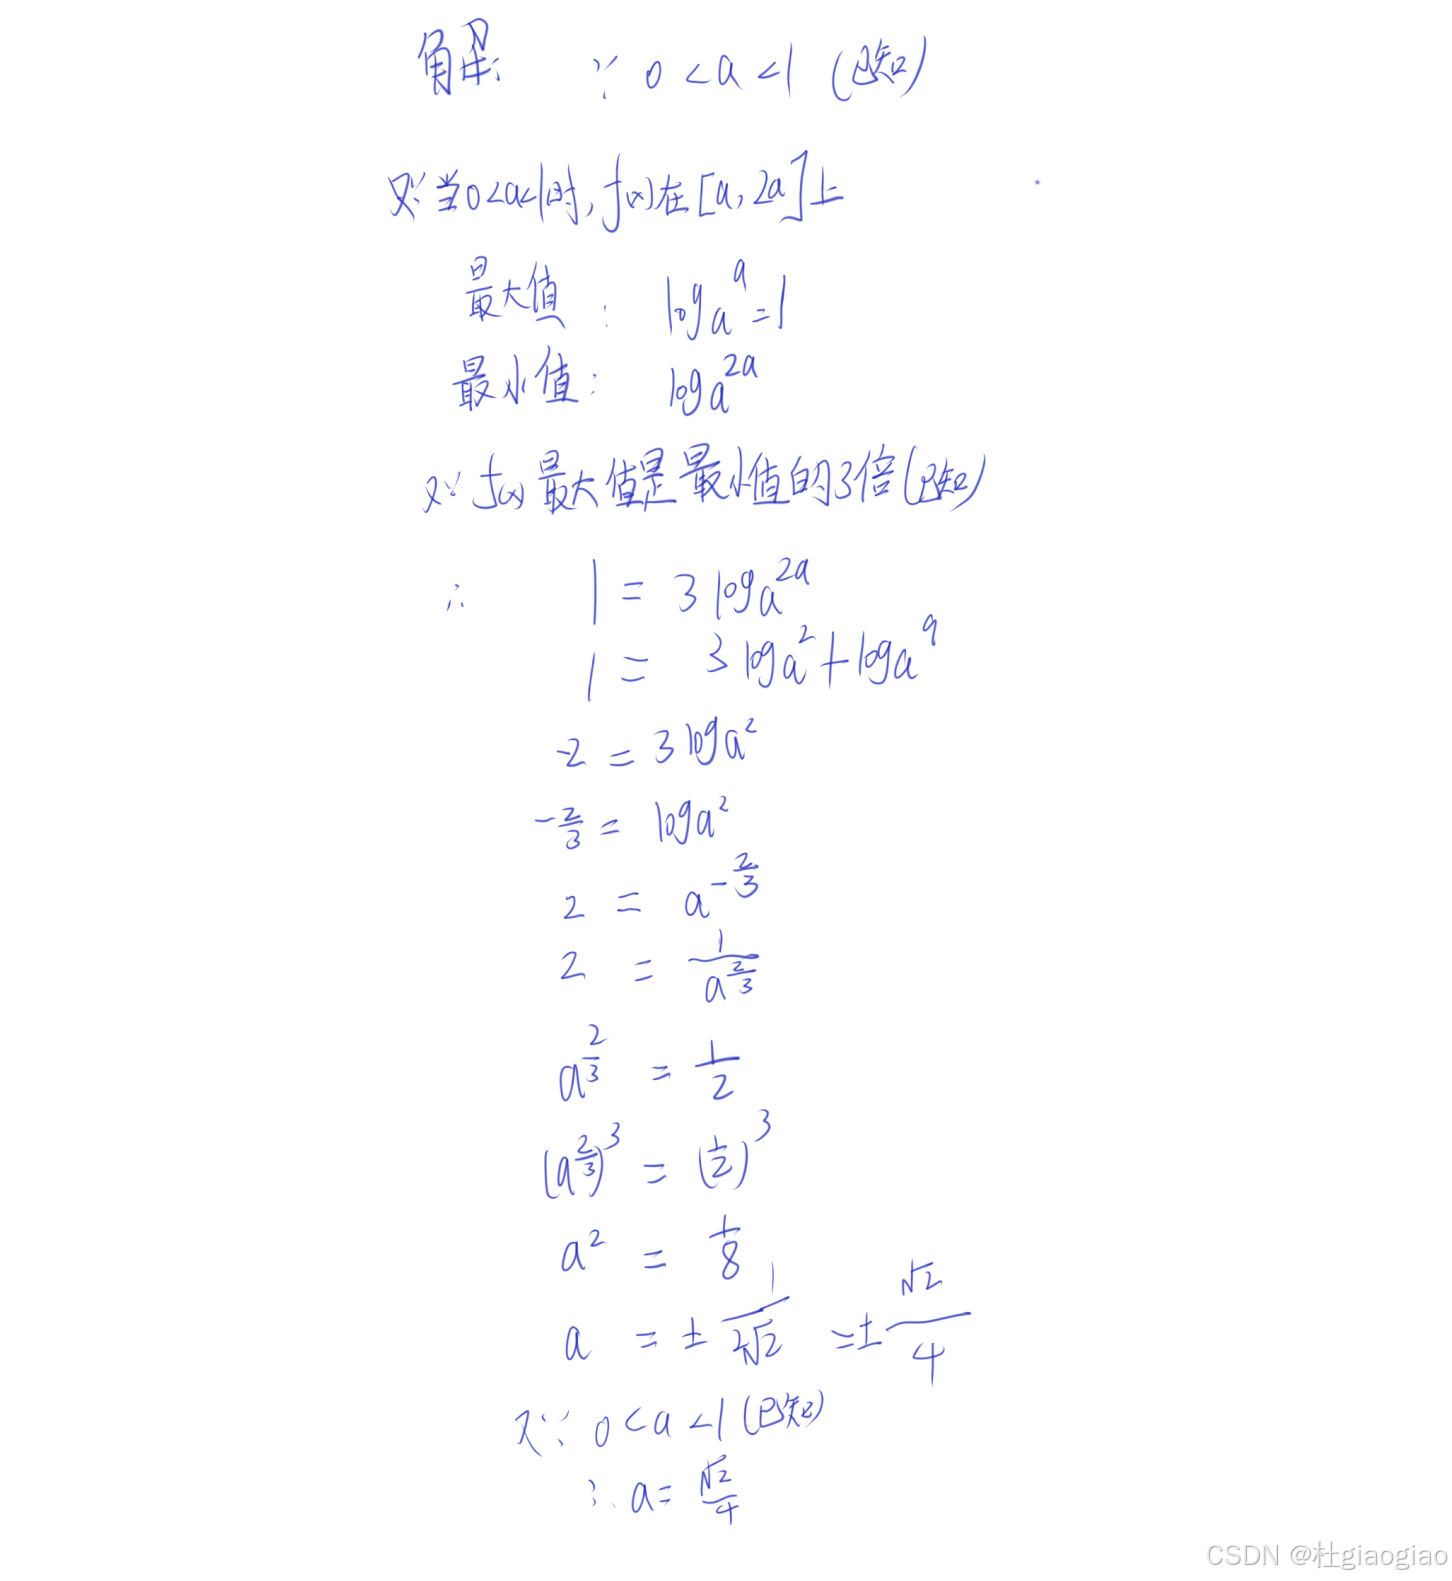 解: ∵ 0<a<1 (已知)
又∵当0<a<1时, f(x)在[a,2a]上
最大值: logₐ^a=1
最小值: logₐ^2a
又∵ f(x)最大值是最小值的3倍(已知)
∴ 1 = 3 logₐ^2a
1 = 3 logₐ^2+logₐ^a
-2 = 3 logₐ^2
-2/3 = logₐ^2
2 = a^-2/3
2 = 1/a^2/3
a^2/3 = 1/2
(a^2/3)^3 = (1/2)^3
a² = 1/8
a = ± 1/2√2 =± √2/4
又∵ 0<a<1(已知)
∴ a= √2/4
CSDN @杜giaogiao